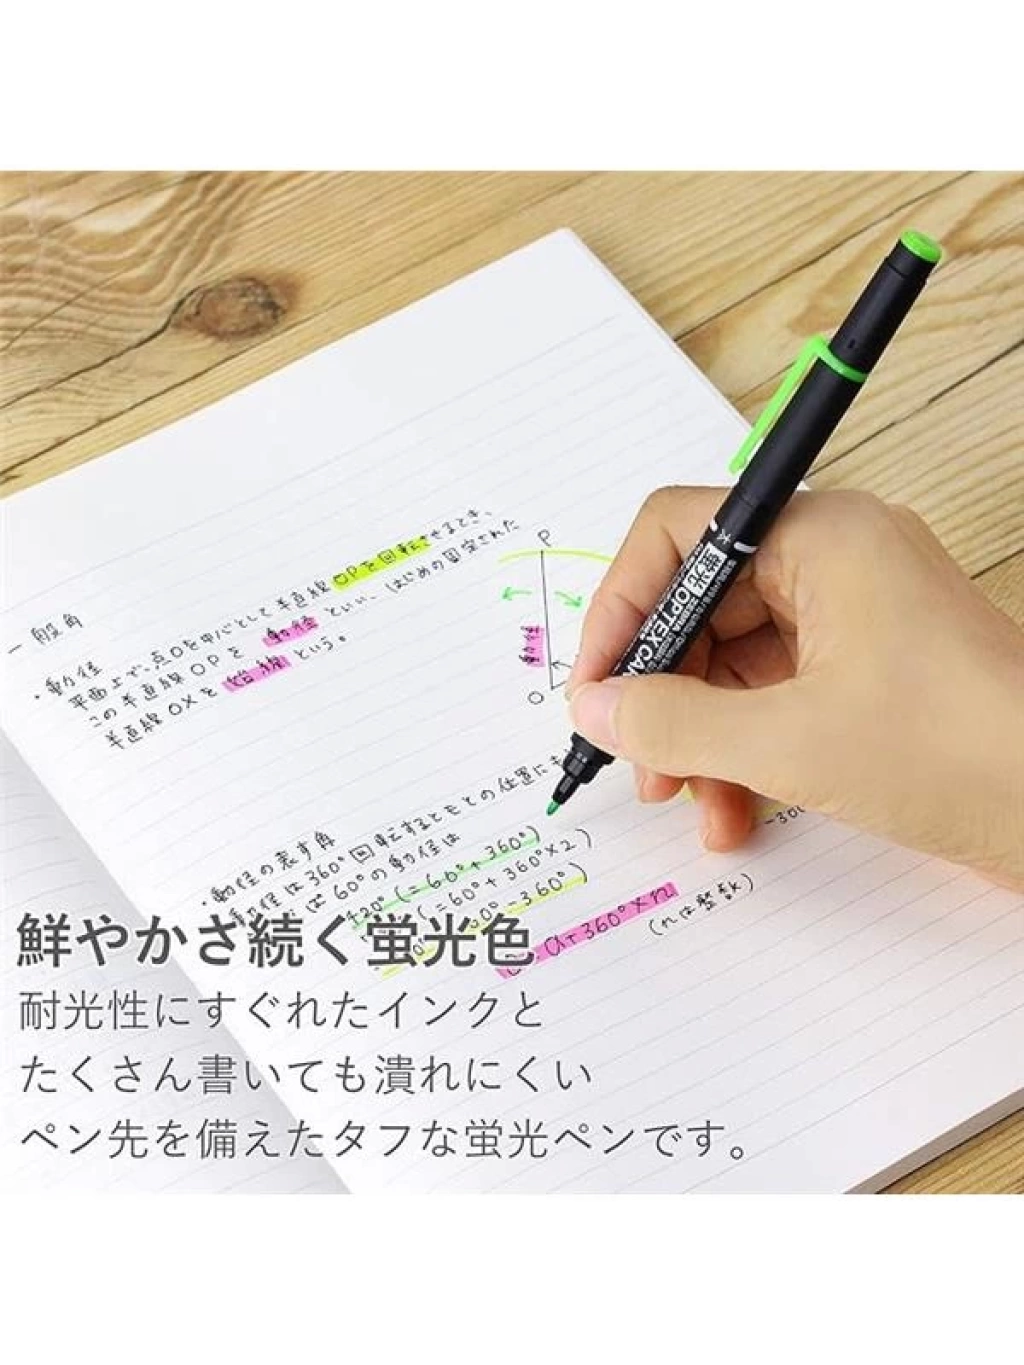 一般角
・動径
平面上で、点Oを中心として半直線OPを回転させるとき、
この半直線OPを 動径 といい、はじめの固定された
半直線OXを 始線 という。
P
動径
O
・動径の表す角
動径は360°回転するともとの位置にも
は60°の動径は
420° (=60°+360°)
(=60°+360°×2)
-360°)
-300
α+360°×n
(nは整数)
太
蛍光 OPTEX CAR
鮮やかさ続く蛍光色
耐光性にすぐれたインクと
たくさん書いても潰れにくい
ペン先を備えたタフな蛍光ペンです。